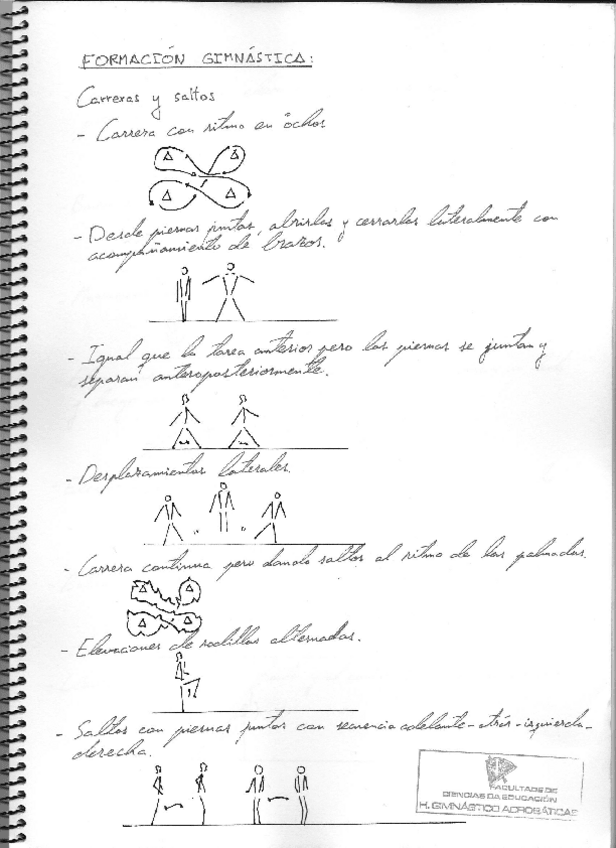 FORMACIÓN GIMNÁSTICA:
Carreras y saltos
- Carrera con ritmo en ochos
- Desde piernas juntas, abrirlas y cerrarlas lateralmente con
acompañamiento de brazos.
- Igual que la tarea anterior pero las piernas se juntan y
separan anteroposteriormente.
- Desplazamientos laterales.
- Carrera continua pero dando saltos al ritmo de las palmadas.
- Elevaciones de rodillas alternadas.
- Saltos con piernas juntas con secuencia adelante-atrás-izquierda-
derecha.
FACULTADE DE
CIENCIAS DA EDUCACIÓN
H. GIMNÁSTICO ACROBÁTICAS